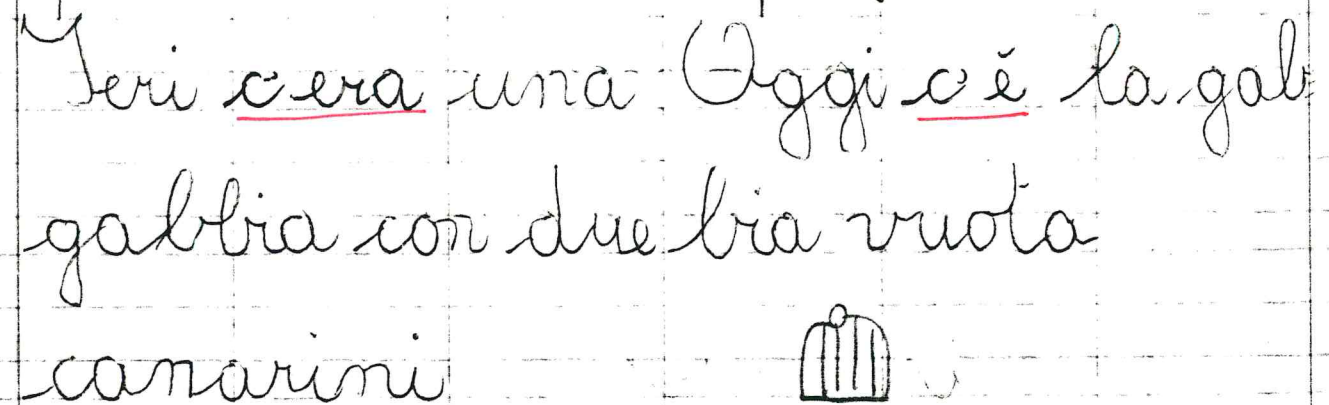 Ieri c'era una
gabbia con due
canarini
Oggi c'è la gab=
bia vuota